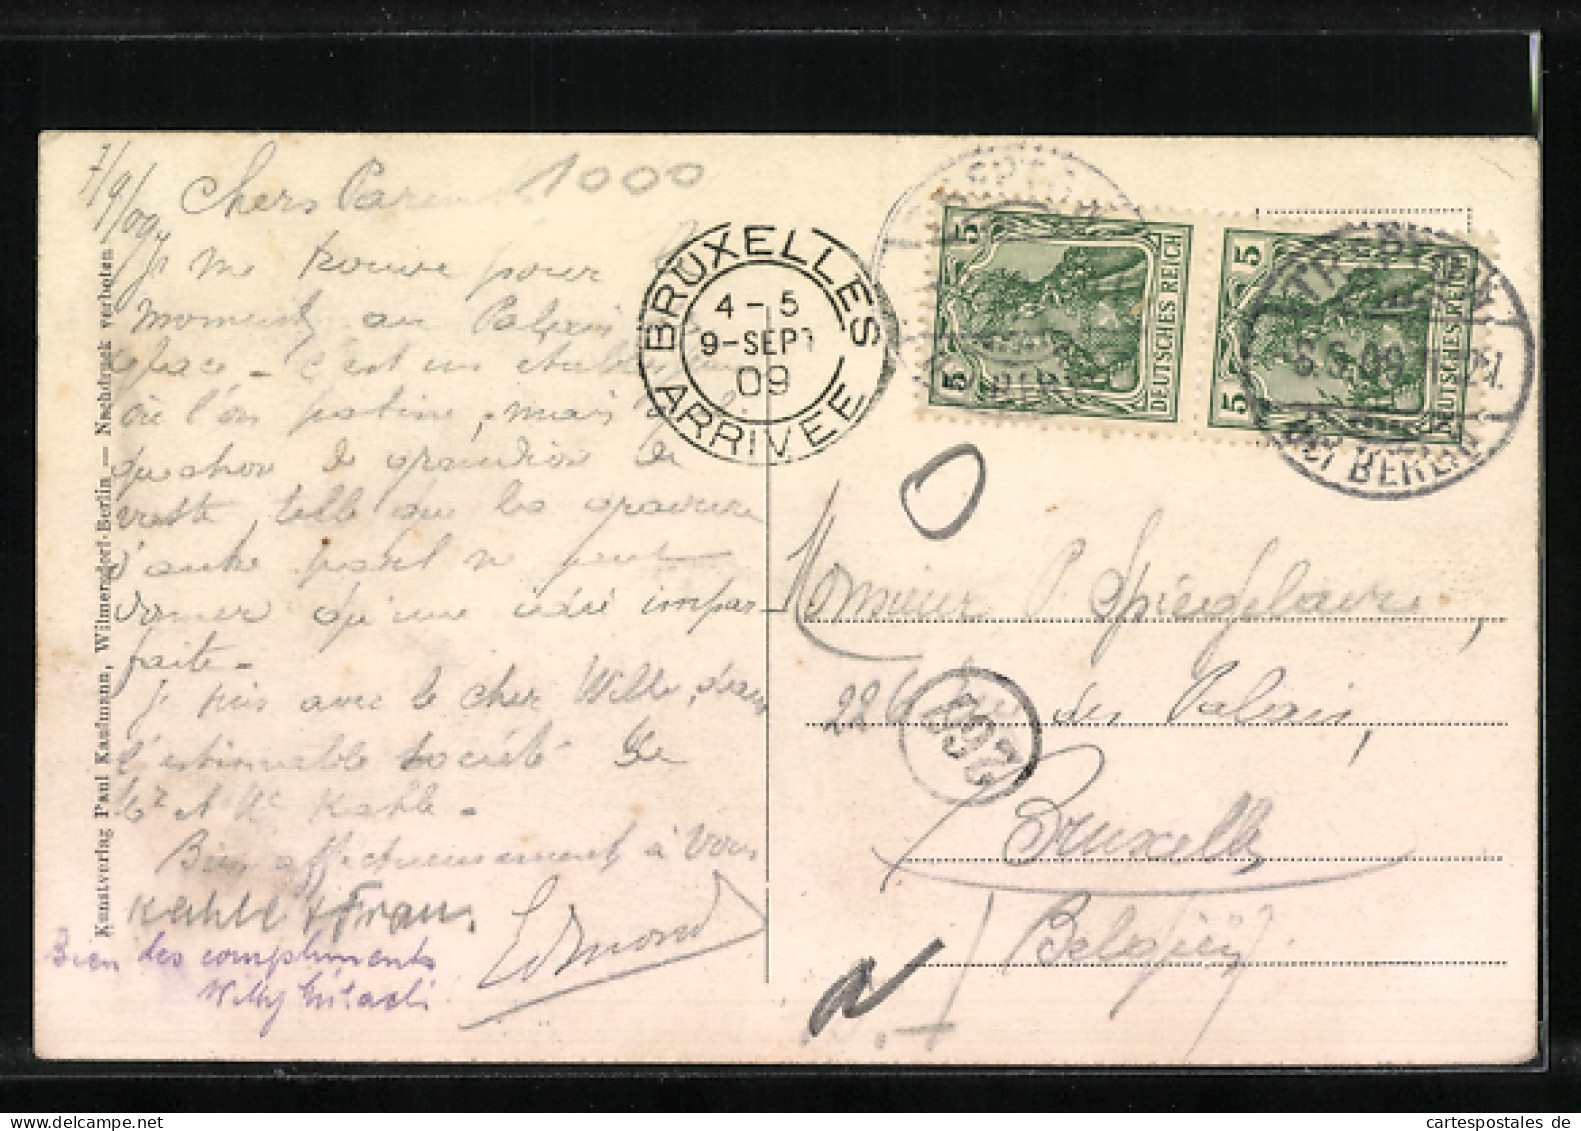 7/9/09
1000
Chers Parents
Je me trouve pour
moment au Palais de
glace - c'est un
où l'on patine, mais
quechose de grandiose le
reste, telle que les gravure
d'autre part ne peut
donner qu'une idée impar-
faite -
Je suis avec le cher Willy, dans
l'estimable société de
Mr & Me Kahle -
Bien affectueusement à Vous
Edmond
Kahle & Frau,
Bien des compliments
Willy
Kunstverlag Paul Kaufmann, Wilmersdorf-Berlin — Nachdruck verboten
BRUXELLES
4-5
9-SEPT
09
ARRIVEE
5 5 DEUTSCHES REICH
5 5 DEUTSCHES REICH
8.9.09
bei BERLIN
Monsieur P. Spiegelaere,
226 Rue des Palais,
Bruxelles
Belgien
cartespostales de